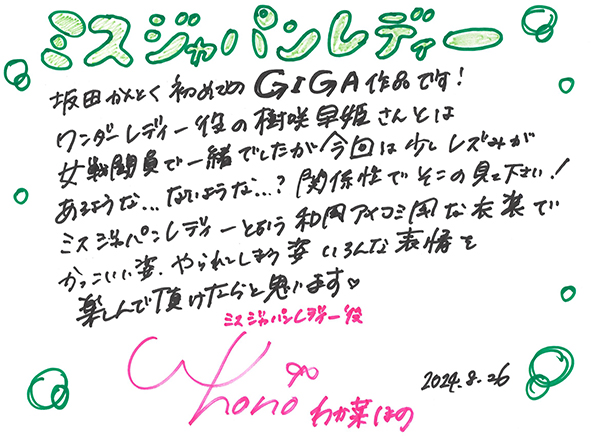 ミスジャパンレディー
坂田かんとく初めてのGIGA作品です!
ワンダーレディー役の樹咲早姫さんとは
女戦闘員で一緒でしたが今回は少しレズみが
あるような…ないような…?関係性でそこの見て下さい!
ミスジャパンレディーという和風アメコミ風な衣装で
かっこいい姿、やられてしまう姿いろんな表情を
楽しんで頂けたらと思います♡
ミスジャパンレディー役
Honoわか菜ほの
2024.8.26